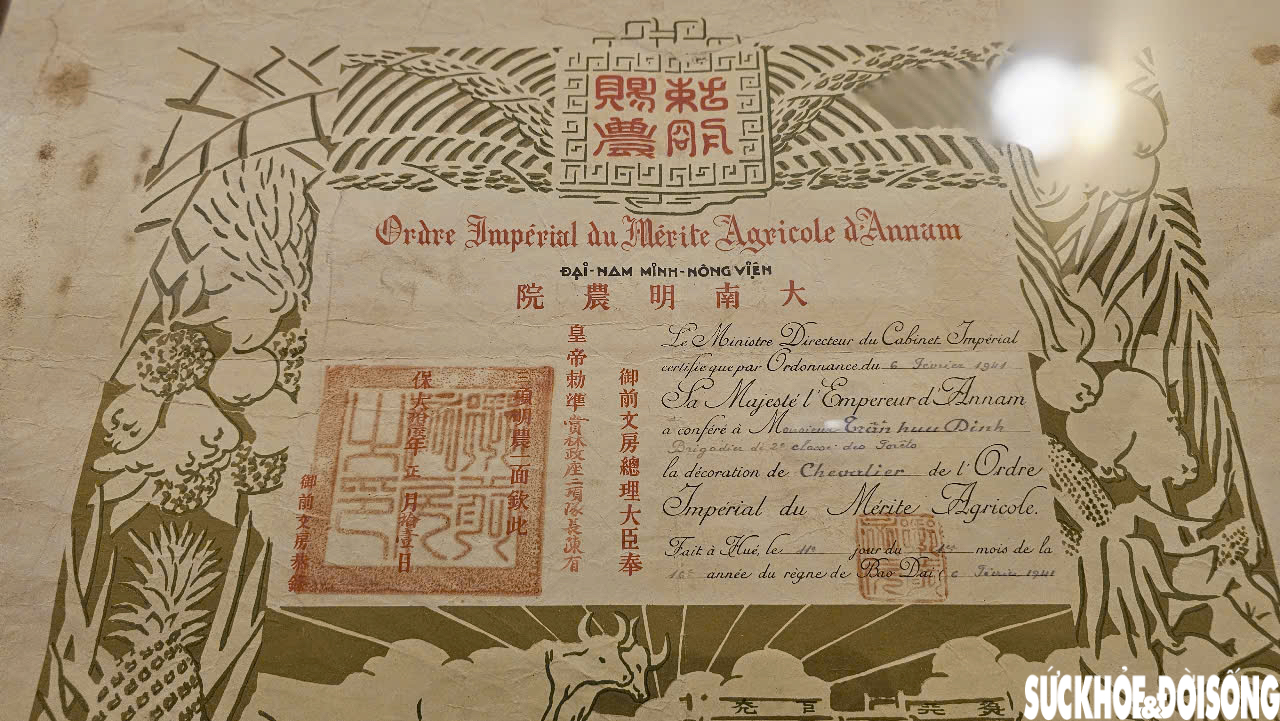 敕賜明農
Ordre Impérial du Mérite Agricole d'Annam
ĐẠI-NAM MINH-NÔNG VIỆN
院農明南大
Le Ministre Directeur du Cabinet Impérial
certifie que par Ordonnance du 6 Février 1941
Sa Majesté l'Empereur d'Annam
a conféré à Monsieur Trần hưu Dinh
Brigadier de 2e classe des Forêts
la décoration de Chevalier de l'Ordre
Impérial du Mérite Agricole.
Fait à Hué, le 11e jour du 1er mois de la
16e année du règne de Bao Dai (6 Février 1941
御前文房總理大臣奉
皇帝勅準賞林政座二項隊長陳有
三項明農一面欽此
保大拾陸年正月拾壹日
御前文房恭錄
SỨC KHỎE & ĐỜI SỐNG